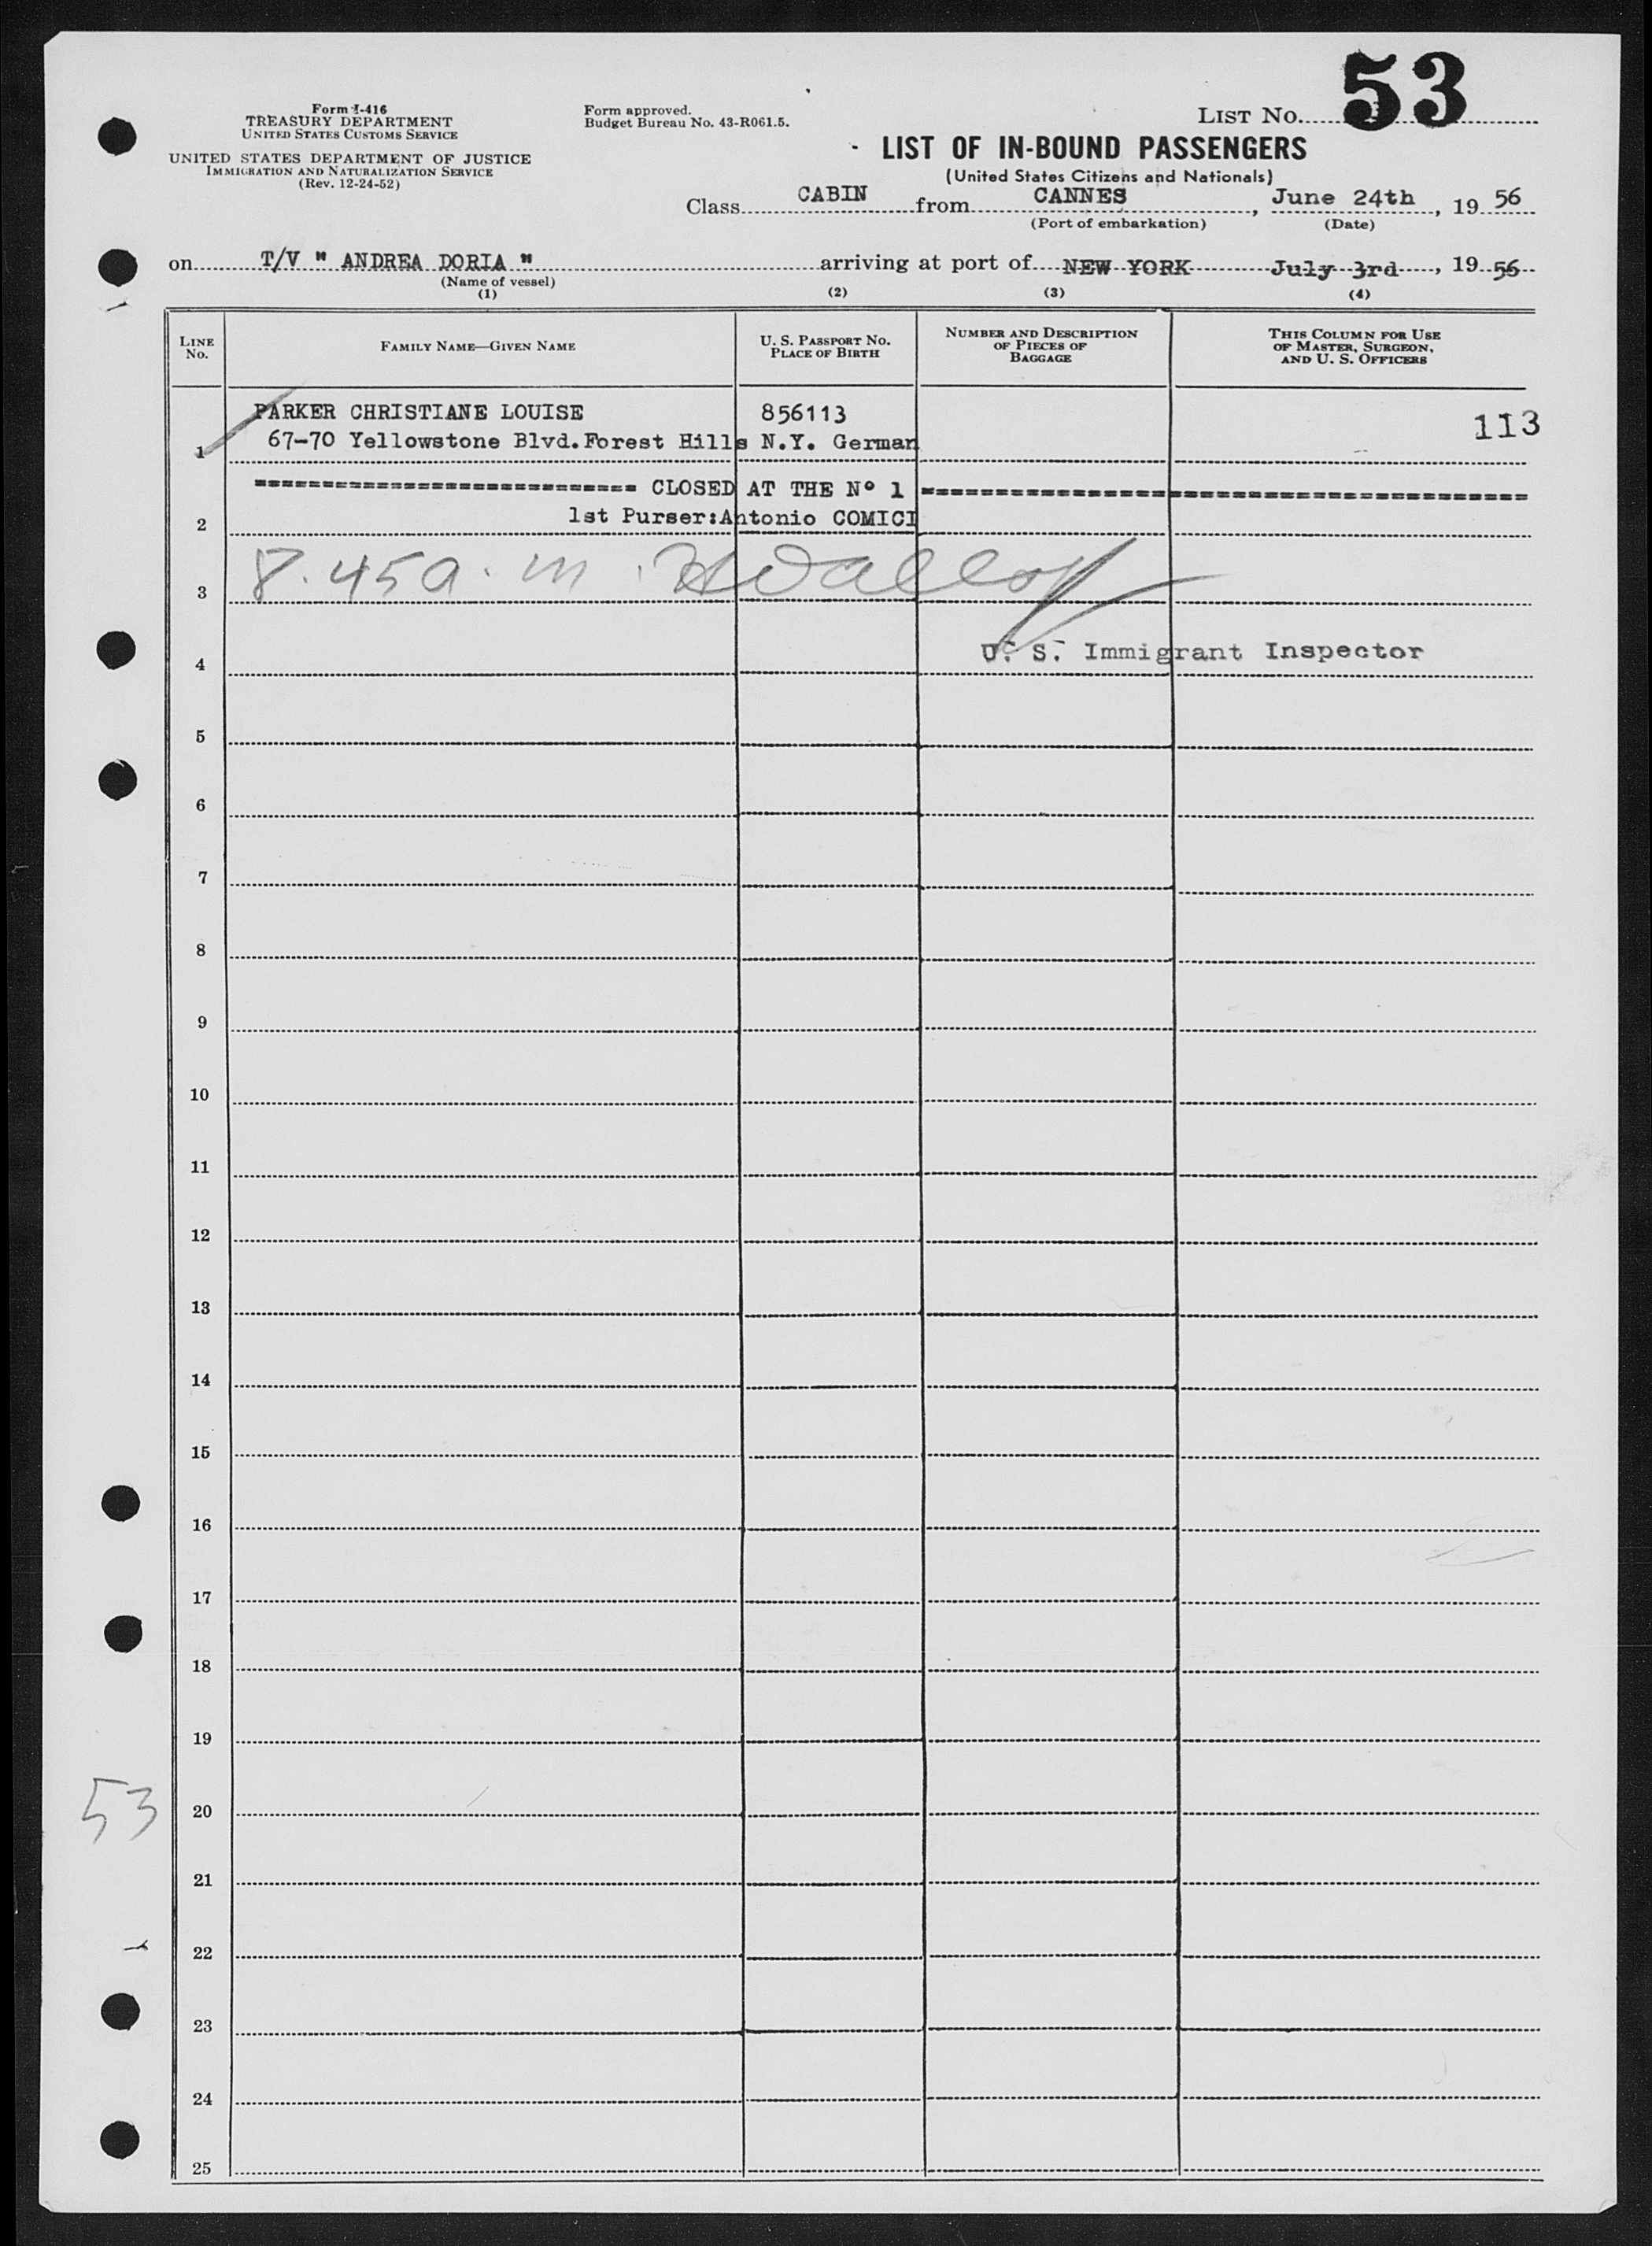 53
Form I-416
TREASURY DEPARTMENT
UNITED STATES CUSTOMS SERVICE
UNITED STATES DEPARTMENT OF JUSTICE
IMMIGRATION AND NATURALIZATION SERVICE
(Rev. 12-24-52)
Form approved.
Budget Bureau No. 43-R061.5.
LIST No.
LIST OF IN-BOUND PASSENGERS
(United States Citizens and Nationals)
Class CABIN from CANNES, June 24th, 19 56
(Port of embarkation) (Date)
on T/V " ANDREA DORIA " arriving at port of NEW YORK July 3rd, 19 56
(Name of vessel)
(1) (2) (3) (4)
LINE No. FAMILY NAME—GIVEN NAME U. S. PASSPORT No. PLACE OF BIRTH NUMBER AND DESCRIPTION OF PIECES OF BAGGAGE THIS COLUMN FOR USE OF MASTER, SURGEON, AND U. S. OFFICERS
PARKER CHRISTIANE LOUISE 856113 113
1 67-70 Yellowstone Blvd.Forest Hills N.Y. German
CLOSED AT THE Nº 1
2 1st Purser:Antonio COMICI
3 8.45 a.m.
4 U. S. Immigrant Inspector
5
6
7
8
9
10
11
12
13
14
15
16
17
18
19
53 20
21
22
23
24
25